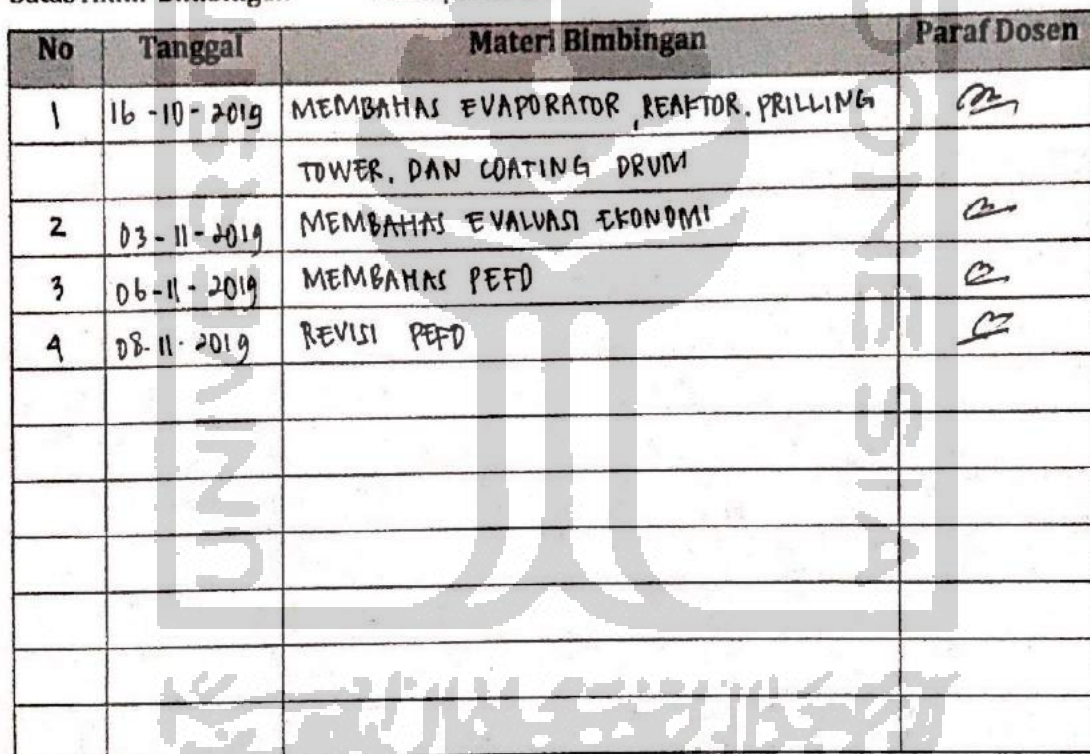 No Tanggal Materi Bimbingan Paraf Dosen
1 16-10-2019 MEMBAHAS EVAPORATOR, REAKTOR. PRILLING
TOWER. DAN COATING DRUM
2 03-11-2019 MEMBAHAS EVALUASI EKONOMI
3 06-11-2019 MEMBAHAS PEFD
4 08-11-2019 REVISI PEFD